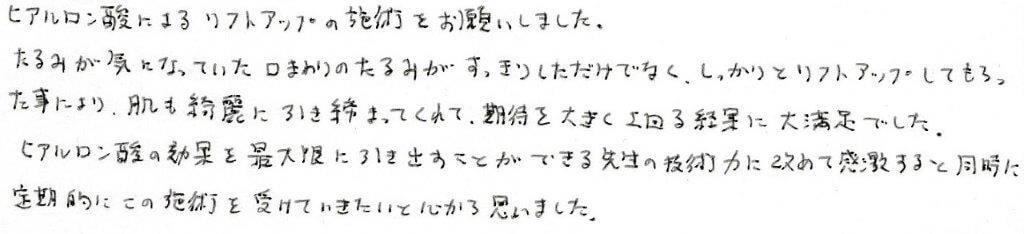 ヒアルロン酸によるリフトアップの施術をお願いしました。
たるみが気になっていた口まわりのたるみがすっきりしただけでなく、しっかりとリフトアップしてもらっ
た事により、肌も綺麗に引き締まってくれて、期待を大きく上回る結果に大満足でした。
ヒアルロン酸の効果を最大限に引き出すことができる先生の技術力に改めて感激すると同時に
定期的にこの施術を受けていきたいと心から思いました。